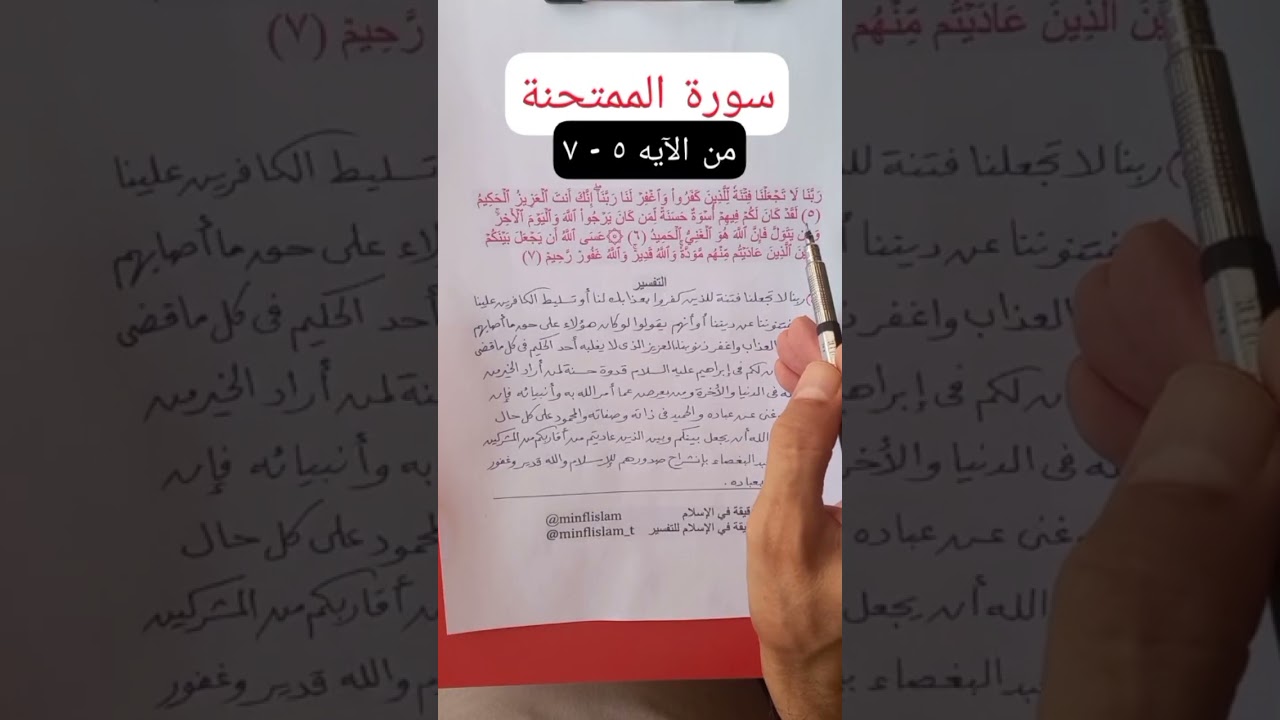 سورة الممتحنة
من الآيه ٥ - ٧
رَبَّنَا لَا تَجْعَلْنَا فِتْنَةً لِّلَّذِينَ كَفَرُوا۟ وَٱغْفِرْ لَنَا رَبَّنَآ ۖ إِنَّكَ أَنتَ ٱلْعَزِيزُ ٱلْحَكِيمُ
(٥) لَقَدْ كَانَ لَكُمْ فِيهِمْ أُسْوَةٌ حَسَنَةٌ لِّمَن كَانَ يَرْجُوا۟ ٱللَّهَ وَٱلْيَوْمَ ٱلْـَٔاخِرَ ۚ
يَتَوَلَّ فَإِنَّ ٱللَّهَ هُوَ ٱلْغَنِىُّ ٱلْحَمِيدُ (٦) ۞ عَسَى ٱللَّهُ أَن يَجْعَلَ بَيْنَكُمْ
ٱلَّذِينَ عَادَيْتُم مِّنْهُم مَّوَدَّةً ۚ وَٱللَّهُ قَدِيرٌ ۚ وَٱللَّهُ غَفُورٌ رَّحِيمٌ (٧)
التفسير
ربنا لا تجعلنا فتنة للذين كفروا بعذابك لنا أو تسليط الكافرين علينا
عن ديننا أو أنهم يقولوا لو كان هؤلاء على حق ما أصابهم
العذاب واغفر ذنوبنا العزيز الذى لا يغلبه أحد الحكيم فى كل ما قضى
لكم فى إبراهيم عليه السلام قدوة حسنة لمن أراد الخير من
فى الدنيا والأخرة ومن يعرض عما أمر الله به وأنبيائه فإن
غنى عن عباده والحميد فى ذاته وصفاته والمحمود على كل حال
الله أن يجعل بينكم وبين الذين عاديتم من أقاربكم من المشركين
البغضاء بإنشراح صدورهم للإسلام والله قدير وغفور
بعباده .
@minflislam قيقة في الإسلام
@minflislam_t يقة في الإسلام للتفسير